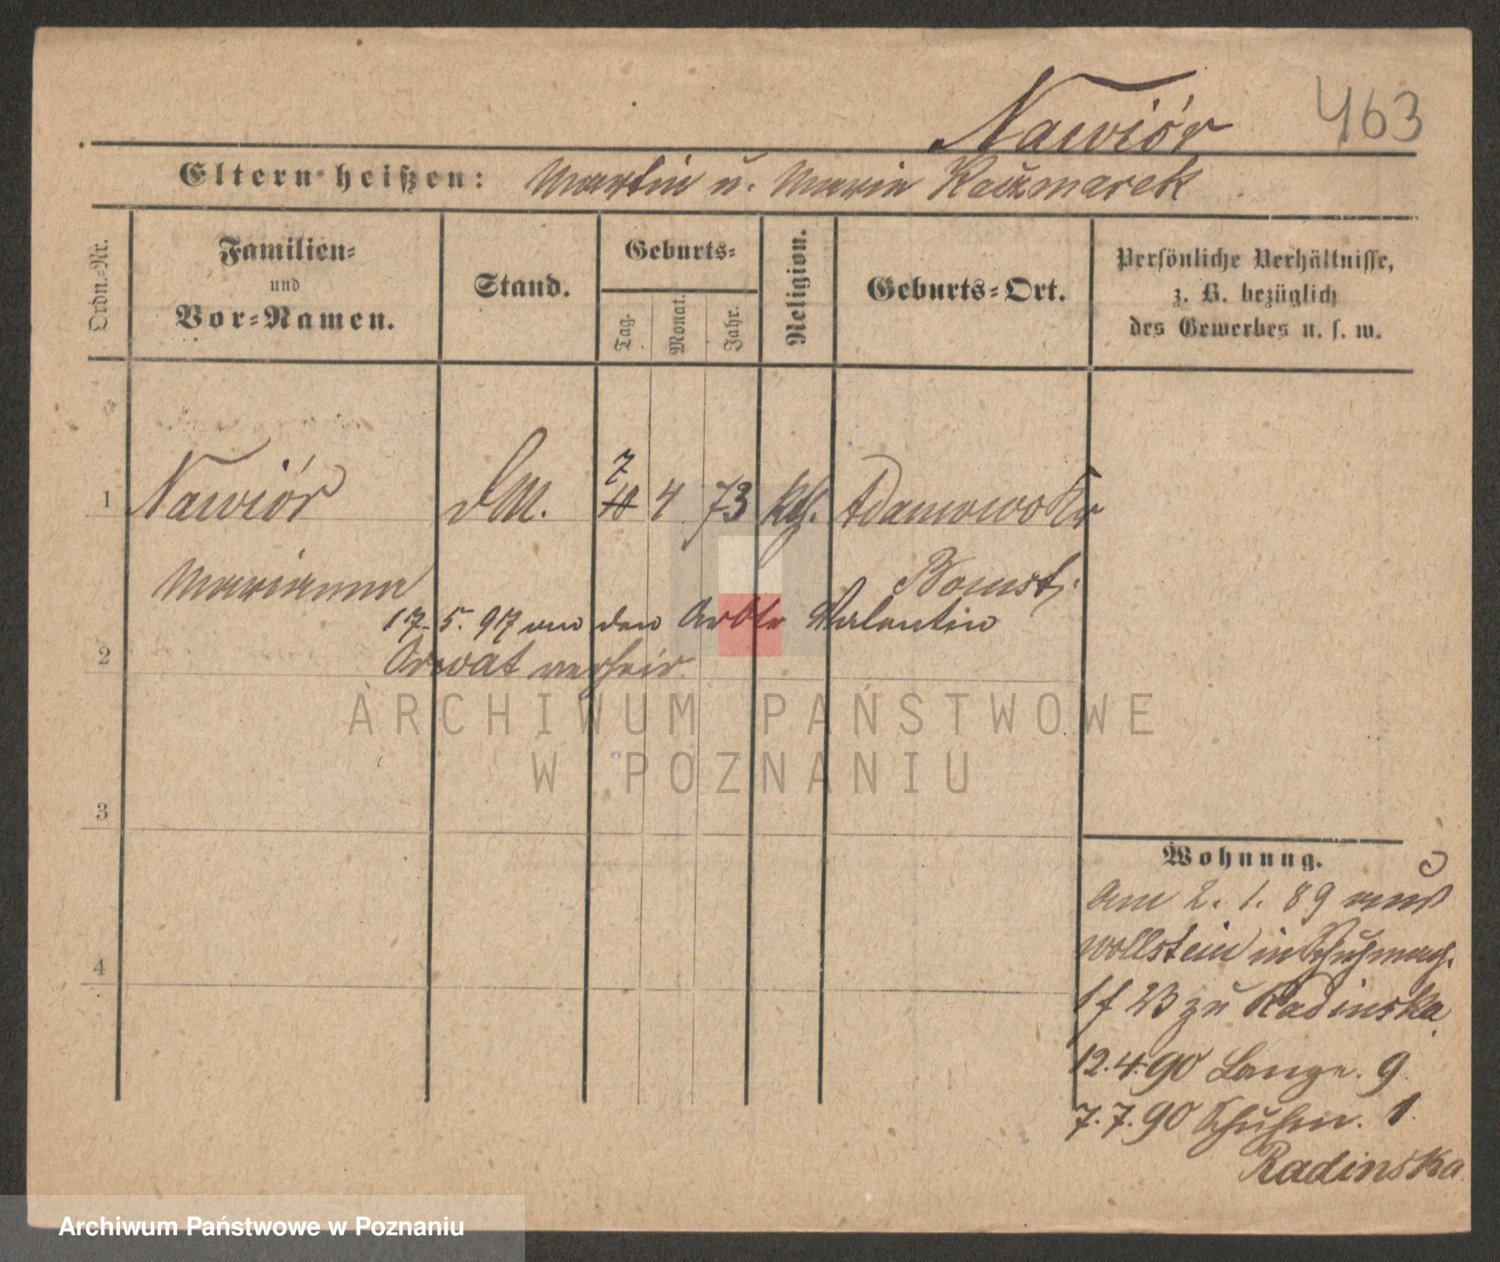 Nawiór 463
Eltern heißen: Martin u. Marie Kaczmarek
Ordn.-Nr.
Familien-
und
Vor-Namen.
Stand.
Geburts-
Tag.
Monat.
Jahr.
Religion.
Geburts-Ort.
Persönliche Verhältnisse,
z. B. bezüglich
des Gewerbes u. s. w.
1 Nawiór DM. 7 4 73 kth. Adamowo Kr
Marianna Bomst.
17.5.97 an den Arbtr Valentin
2 Orwat verheir.
ARCHIWUM PAŃSTWOWE
W POZNANIU
3
4
Wohnung.
Am 2.1.89 aus
Wollstein in Schuhmach.
1 f 23 zu Radinska
12.4.90 Lange. 9.
7.7.90 Schuhm. 1.
Radinska
Archiwum Państwowe w Poznaniu